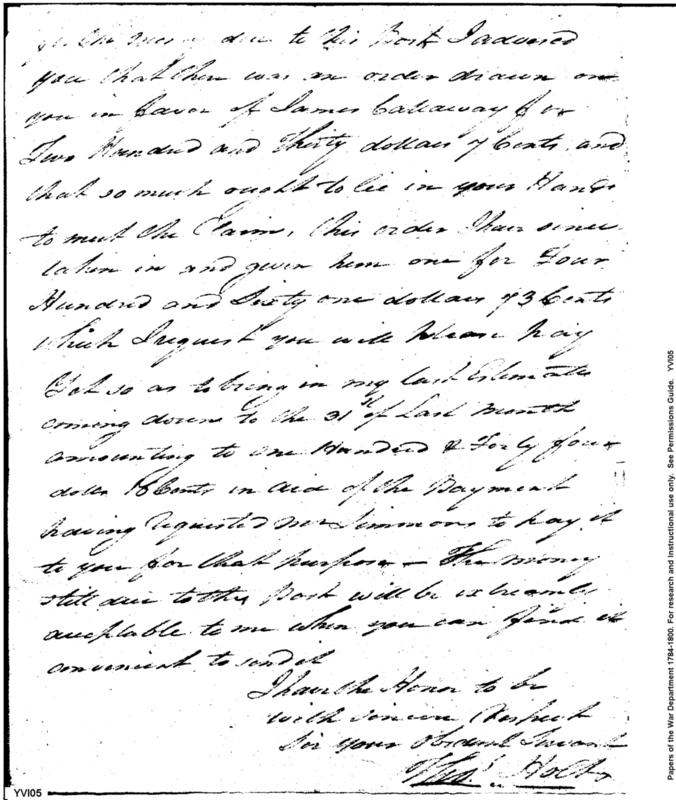 the money due to this Post I advised
you that there was an order drawn on
you in favor of James Callaway for
Two Hundred and Thirty dollars 7 Cents, and
that so much ought to lie in your Hands
to meet the Claim, this order I have since
taken in and given him one for Four
Hundred and Sixty one dollars 73 Cents
which I request you will please pay
Yet so as to bring in my last Estimate
coming down to the 31st of Last Month
amounting to one Hundred & Forty four
dolls 18 Cents in aid of the Payment
having requested Mr Simmons to pay it
to you for that purpose - The money
still due to this Post will be extreamly
acceptable to me when you can find it
convenient to send it
I have the Honor to be
with sincere Respect
Sir your Obedient Servant
Thos. Holt
YVI05
Papers of the War Department 1784-1800. For research and instructional use only. See Permissions Guide. YVI05